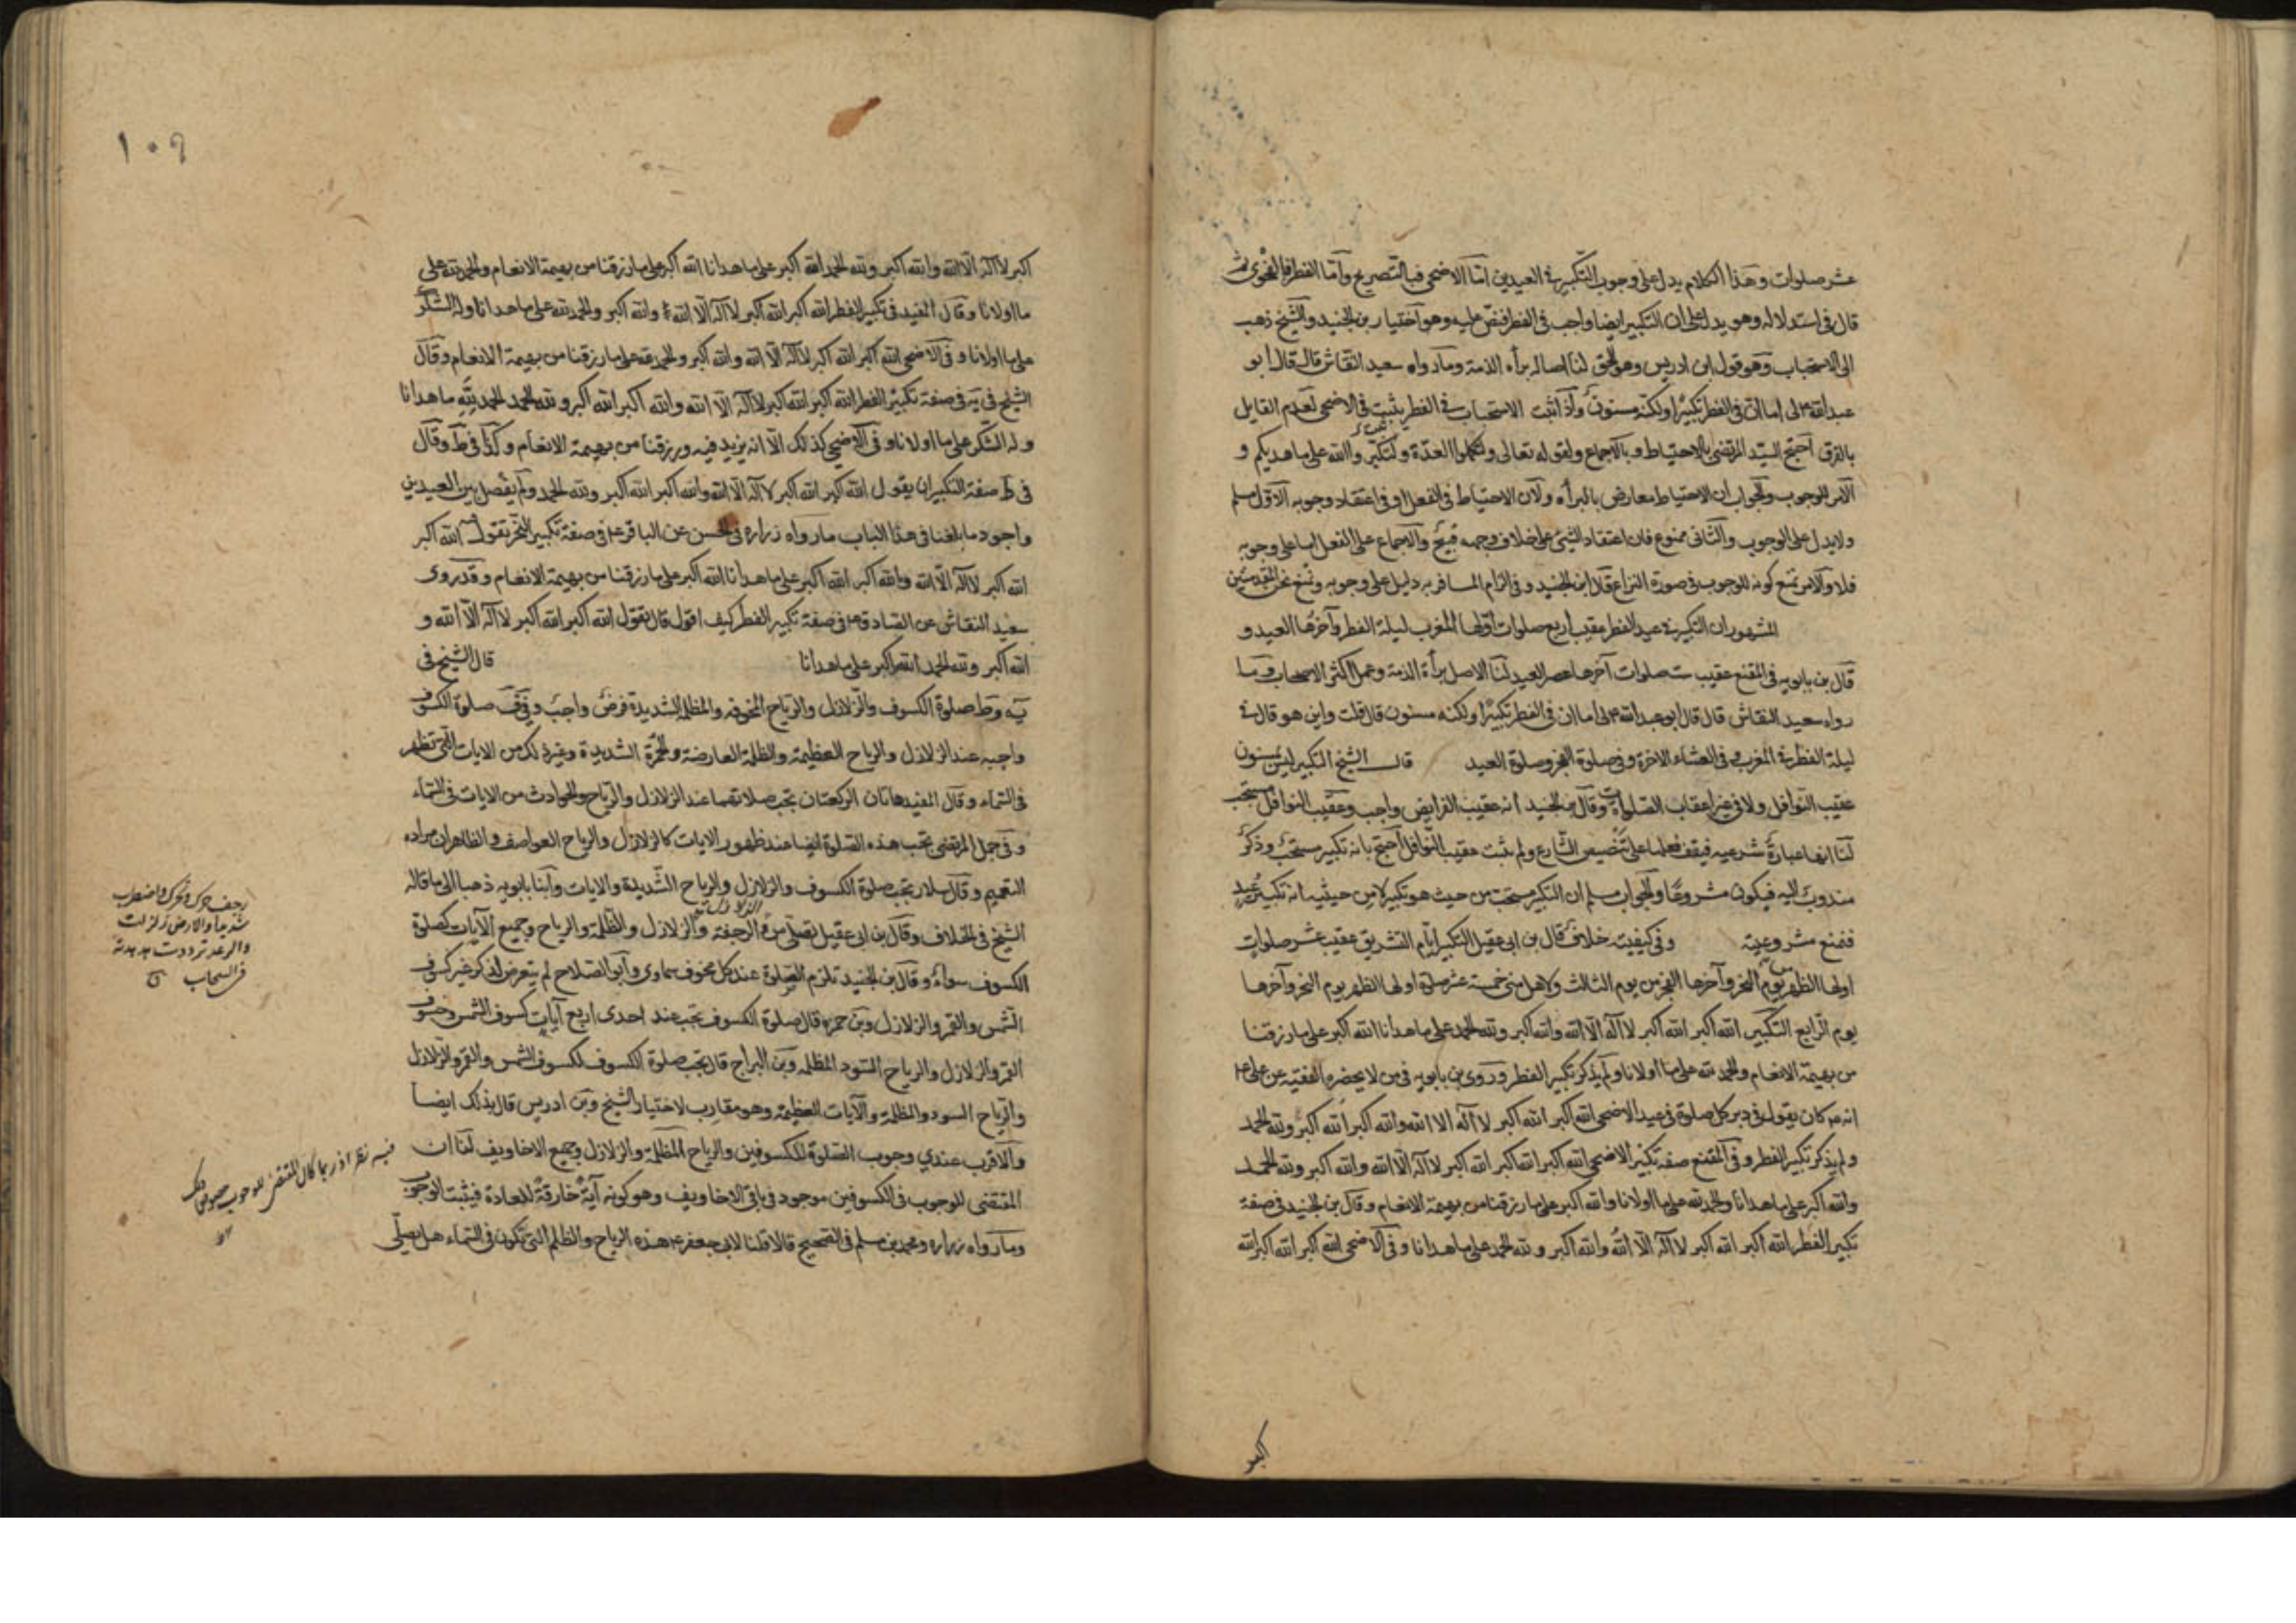 عشر صلوات وهذا الكلام يدل على وجوب التكبير في العيدين اما الاضحى فبالتصريح واما الفطر فبالفحوى ثم
قال في استدلاله وهو يدل على ان التكبير ايضا واجب في الفطر فنص عليه وهو اختيار بن الجنيد والشيخ ذهب
الى الاستحباب وهو قول ابن ادريس وهو الحق لنا اصالة برأه الذمة وما رواه سعيد النقاش قال قال ابو
عبد الله ع لى اما ان في الفطر تكبيرا ولكنه مسنون واذا ثبت الاستحباب في الفطر يثبت في الاضحى لعدم القايل
بالفرق احتج السيد المرتضى بالاحتياط وبالاجماع ولقوله تعالى ولتكملوا العدة ولتكبروا الله على ما هديكم و
الامر للوجوب والجواب ان الاحتياط معارض بالبرأه ولان الاحتياط في الفعل او في اعتقاد وجوبه الاول مسلم
ولا يدل على الوجوب والثاني ممنوع فان اعتقاد الشئ على خلاف وجهه قبيح والاجماع على الفعل اما على وجوبه
فلا والامر نمنع كونه للوجوب في صورة النزاع وقال ابن الجنيد وفي الزام المسافر به دليل على وجوبه ونمنع نحن المقدمتين
المشهور ان التكبير في عيد الفطر عقيب اربع صلوات اولها المغرب ليلة الفطر وآخرها العيد و
قال بن بابويه في المقنع عقيب ست صلوات آخرها عصر العيد لنا الاصل برأة الذمة وعمل اكثر الاصحاب وما
رواه سعيد النقاش قال قال ابو عبد الله ع لى اما ان في الفطر تكبيرا ولكنه مسنون قال قلت واين هو قال في
ليلة الفطر في المغرب وفي العشاء الاخرة وفي صلوة الفجر وصلوة العيد قال الشيخ التكبير ليس بمسنون
عقيب النوافل ولا في غير اعقاب الصلوات وقال بن الجنيد انه عقيب الفرايض واجب وعقيب النوافل مستحب
لنا انها عبادة شرعيه فيقف فعلها على تنصيص الشارع ولم يثبت عقيب النوافل احتج بانه تكبير مستحب وذكر
مندوب اليه فيكون مشروعا والجواب مسلم ان التكبير مستحب من حيث هو تكبير لا من حيث انه تكبير عيد
فنمنع مشروعيته وفي كيفيته خلاف قال بن ابي عقيل التكبير ايام التشريق عقيب عشر صلوات
اولها الظهر من يوم النحر وآخرها الفجر من يوم الثالث ولاهل منى خمسة عشر صلوة اولها الظهر يوم النحر وآخرها
يوم الرابع التكبير الله اكبر الله اكبر لا اله الا الله والله اكبر ولله الحمد على ما هدانا الله اكبر على ما رزقنا
من بهيمة الانعام والحمد لله على ما اولانا ولم يذكر تكبير الفطر وروى بن بابويه في من لا يحضره الفقيه عن على ع
انه ع كان يقول في دبر كل صلوة في عيد الاضحى الله اكبر الله اكبر لا اله الا الله والله اكبر الله اكبر ولله الحمد
ولم يذكر تكبير الفطر وفي المقنع صفة تكبير الاضحى الله اكبر الله اكبر الله اكبر لا اله الا الله والله اكبر ولله الحمد
والله اكبر على ما هدانا والحمد لله على ما اولانا والله اكبر على ما رزقنا من بهيمة الانعام وقال بن الجنيد في صفة
تكبير الفطر الله اكبر الله اكبر لا اله الا الله والله اكبر ولله الحمد على ما هدانا وفي الاضحى الله اكبر الله اكبر الله
اكبر
١٠٩
اكبر لا اله الا الله والله اكبر ولله الحمد الله اكبر على ما هدانا الله اكبر على ما رزقنا من بهيمة الانعام والحمد لله على
ما اولانا وقال المفيد في تكبير الفطر الله اكبر الله اكبر لا اله الا الله والله اكبر والحمد لله على ما هدانا وله الشكر
على ما اولانا وفي الاضحى الله اكبر الله اكبر لا اله الا الله والله اكبر والحمد لله على ما رزقنا من بهيمة الانعام وقال
الشيخ في يه في صفة تكبير الفطر الله اكبر الله اكبر لا اله الا الله والله اكبر الله اكبر ولله الحمد الحمد لله ما هدانا
وله الشكر على ما اولانا وفي الاضحى كذلك الا انه يزيد فيه ورزقنا من بهيمة الانعام وكذا في ط وقال
في صفة التكبير ان يقول الله اكبر الله اكبر لا اله الا الله والله اكبر الله اكبر ولله الحمد ولم يفصل بين العيدين
واجود ما بلغنا في هذا الباب ما رواه زراره في الحسن عن الباقر ع في صفة تكبير النحر تقول الله اكبر
الله اكبر لا اله الا الله والله اكبر الله اكبر على ما هدانا الله اكبر على ما رزقنا من بهيمة الانعام وقد روى
سعيد النقاش عن الصادق ع في صفة تكبير الفطر كيف اقول قال تقول الله اكبر الله اكبر لا اله الا الله و
الله اكبر ولله الحمد الله اكبر على ما هدانا قال الشيخ في
يه وط صلوة الكسوف والزلازل والرياح المخوفه والظلمة الشديدة فرض واجب وفي ف صلوة الكسوف
واجبه عند الزلازل والرياح العظيمة والظلمة العارضة والحمرة الشديدة وغير ذلك من الايات التي تظهر
في السماء وقال المفيد هاتان الركعتان تجب صلاتهما عند الزلازل والرياح والحوادث من الايات في السماء
وفي جمل المرتضى تجب هذه الصلوة ايضا عند ظهور الايات كالزلازل والرياح العواصف والظاهر ان مراده
التعميم وقال سلار تجب صلوة الكسوف والزلازل والرياح الشديدة والايات وابنا بابويه ذهبا الى ما قاله
الشيخ في الخلاف وقال بن ابي عقيل يصلي في الرجفة والزلازل والظلمة والرياح وجميع الآيات كصلوة
الكسوف سواء وقال بن الجنيد تلزم الصلوة عند كل مخوف سماوي وابو الصلاح لم يتعرض لذكر غير كسوف
الشمس والقمر والزلازل وبن حمزه قال صلوة الكسوف تجب عند احدى اربع آيات كسوف الشمس وخسوف
القمر والزلازل والرياح السود المظلمه وبن البراج قال تجب صلوة الكسوف لكسوف الشمس والقمر والزلازل
والرياح السود والمظلمة والآيات العظيمة وهو مقارب لاختيار الشيخ وبن ادريس قال بذلك ايضا
والاقرب عندي وجوب الصلوة للكسوفين والرياح المظلمة والزلازل وجميع الاخاويف لنا ان
المقتضى للوجوب في الكسوفين موجود في باقي الاخاويف وهو كونه آية خارقة للعادة فيثبت الوجوب
وما رواه زراره ومحمد بن مسلم في الصحيح قالا قلنا لابي جعفر ع هذه الرياح والظلم التي تكون في السماء هل يصلي
رجف حرك وتحرك واضطرب
شديدا والارض زلزلت
والرعد ترددت هدهدته
في السحاب ق
فيه نظر اذ ربما كان المقتضى للوجوب